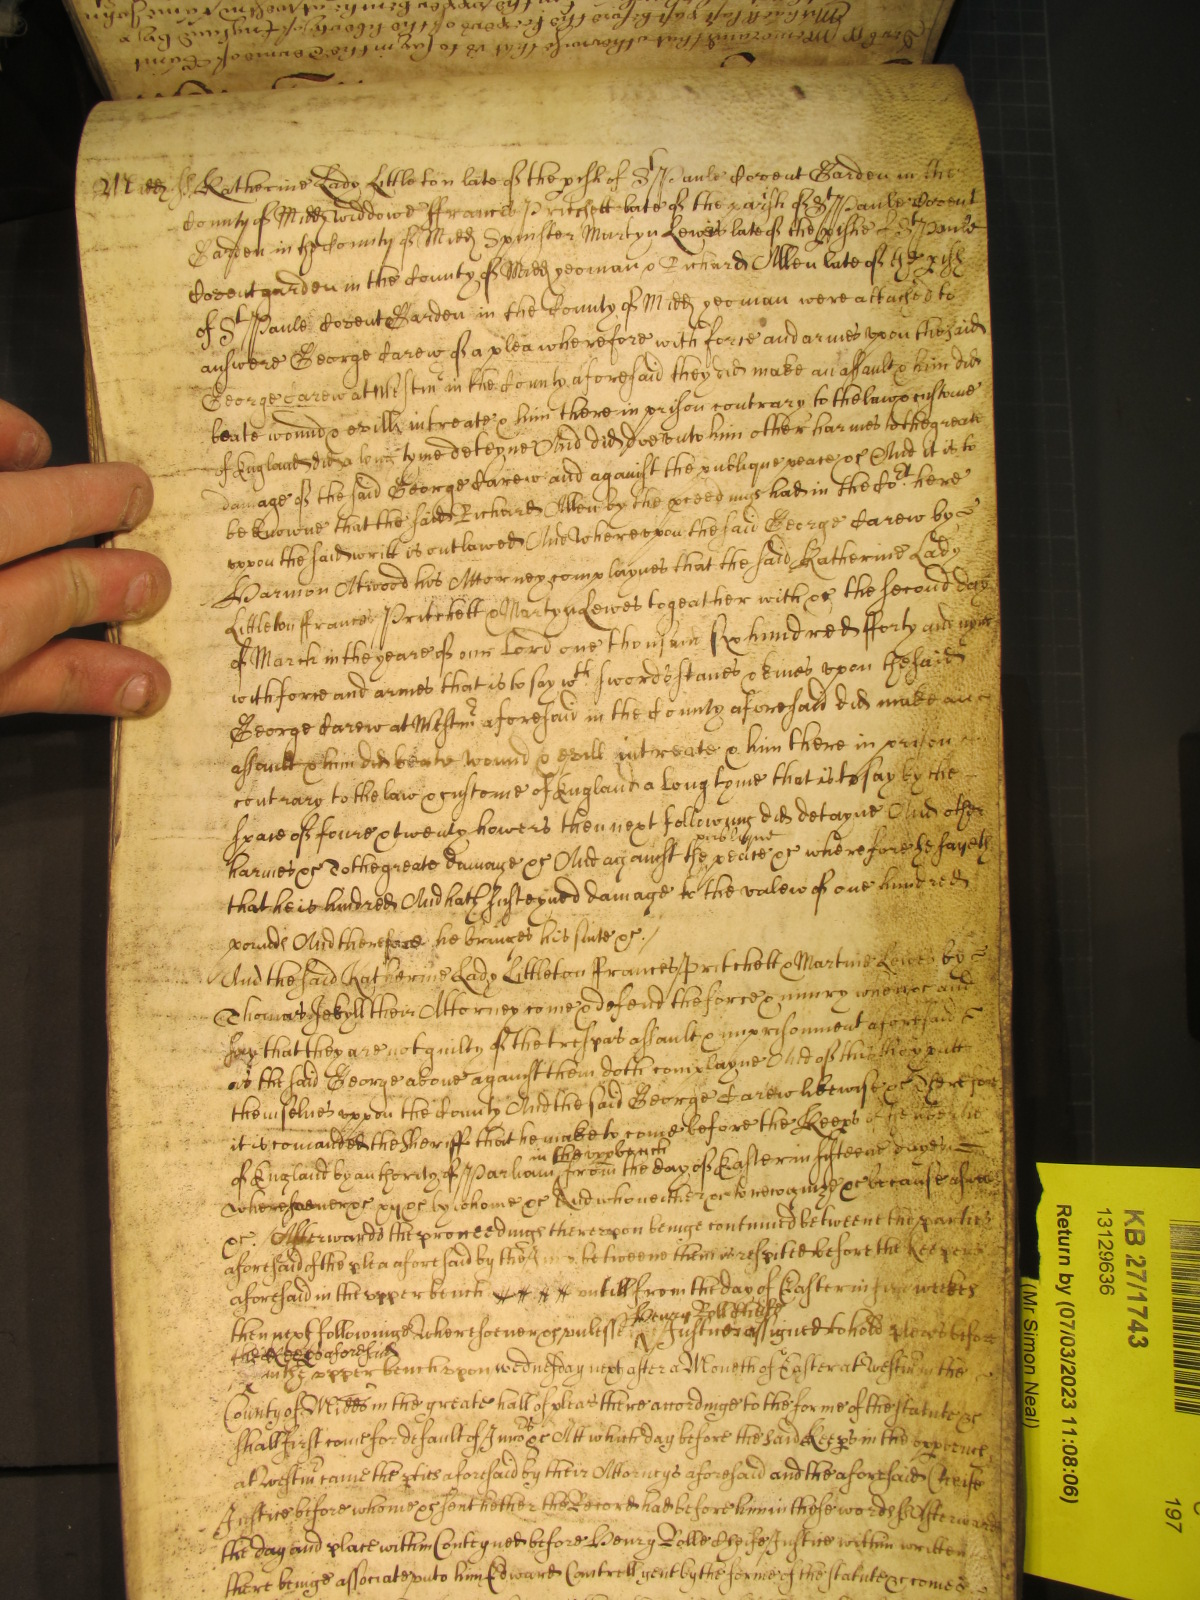 Midd ss Katherine Lady Littleton late of the pish of St Paule Covent Garden in the
County of Midd widdowe Frances Pritchett late of the parish of St Paule Covent
Garden in the County of Midd Spinster Martyn Lewis late of the pishe of St Paule
Covent garden in the County of Midd yeoman & Richard Allen late of the pish
of St Paule Covent Garden in the County of Midd yeoman were attached to
answere George Carew of a plea wherefore with force and armes upon the said
George Carew at Westmr in the County aforesaid they did make an assault & him did
beate wound & evilly intreate & him there in prison contrary to the law & custome
of England did a long tyme deteyne And did doe unto him other harmes to the greate
damage of the said George Carew and against the publique peace &c And it is to
be knowne that the said Richard Allen by the pceedings had in the Cort here
upon the said writt is outlawed And Whereupon the said George Carew by
Harmon Atwood his Attorney complaynes that the said Katherine Lady
Littleton Frances Pritchett & Martyn Lewes togeather with &c the second day
of March in the yeare of our Lord one thousand six hundred fforty and nyne
with force and armes that is to say wth swords staves & knives upon the said
George Carew at Westmr aforesaid in the County aforesaid did make an
assault & him did beate wound & evill intreate & him there in prison
contrary to the law & custome of England a long tyme that is to say by the
space of foure & twenty howers then next following did detayne And other
publique
harmes &c To the greate damage &c And against the peace &c wherefore he sayeth
that he is hindred And hath susteyned damage to the valew of one hundred
pounds And therefore he bringes his suite &c./
And the said Katherine Lady Littleton Frances Pritchett & Martine Lewes by
Thomas Jekyll their Attorney come & defend the force & iniury when &c and
say that they are not guilty of the trespas assault & imprisonment aforesaid
as the said George above against them doth complayne And of this they putt
themselves uppon the County And the said George Carew likewise &c Therefore
it is comanded the Sheriff that he make to come before the Keeps of the libertie
in the uppbench
of England by authority of Parliamt from the day of Easter in fifteene dayes
wheresoever &c xij &c by whome &c And who neither &c to recognize &c because aswell
&c. Afterwards the proceedings thereupon beinge continued betweene the parties
aforesaid of the plea aforesaid by the betweene them is respited before the Keepers
aforesaid in the upper bench untill from the day of Easter in five weekes
Henry Rolle
then next followinge Wheresoever &c unlesse Justice assigned to hold pleas before
the Keeps aforesaid
in the upper bench upon wednesday next after a Moneth of Easter at Westmr in the
County of Midds in the greate hall of pleas there accordinge to the forme of the statute &c
shall first come for default of Juro &c Att which day before the said Keeps in the upper
at Westmr came the pties aforesaid by their Attorneys aforesaid and the aforesaid Cheife
Justice before whome &c sent hether the Record had before him in these words ss Afterwards
the day and place within Conteyned before Henry Rolle Cheife Justice within written
there beinge associate unto him Edward Cantrell gent by the forme of the statute &c comes
KB 27/1743
13129636
Return by (07/03/2023 11:08:06)
(Mr Simon Neal)
197